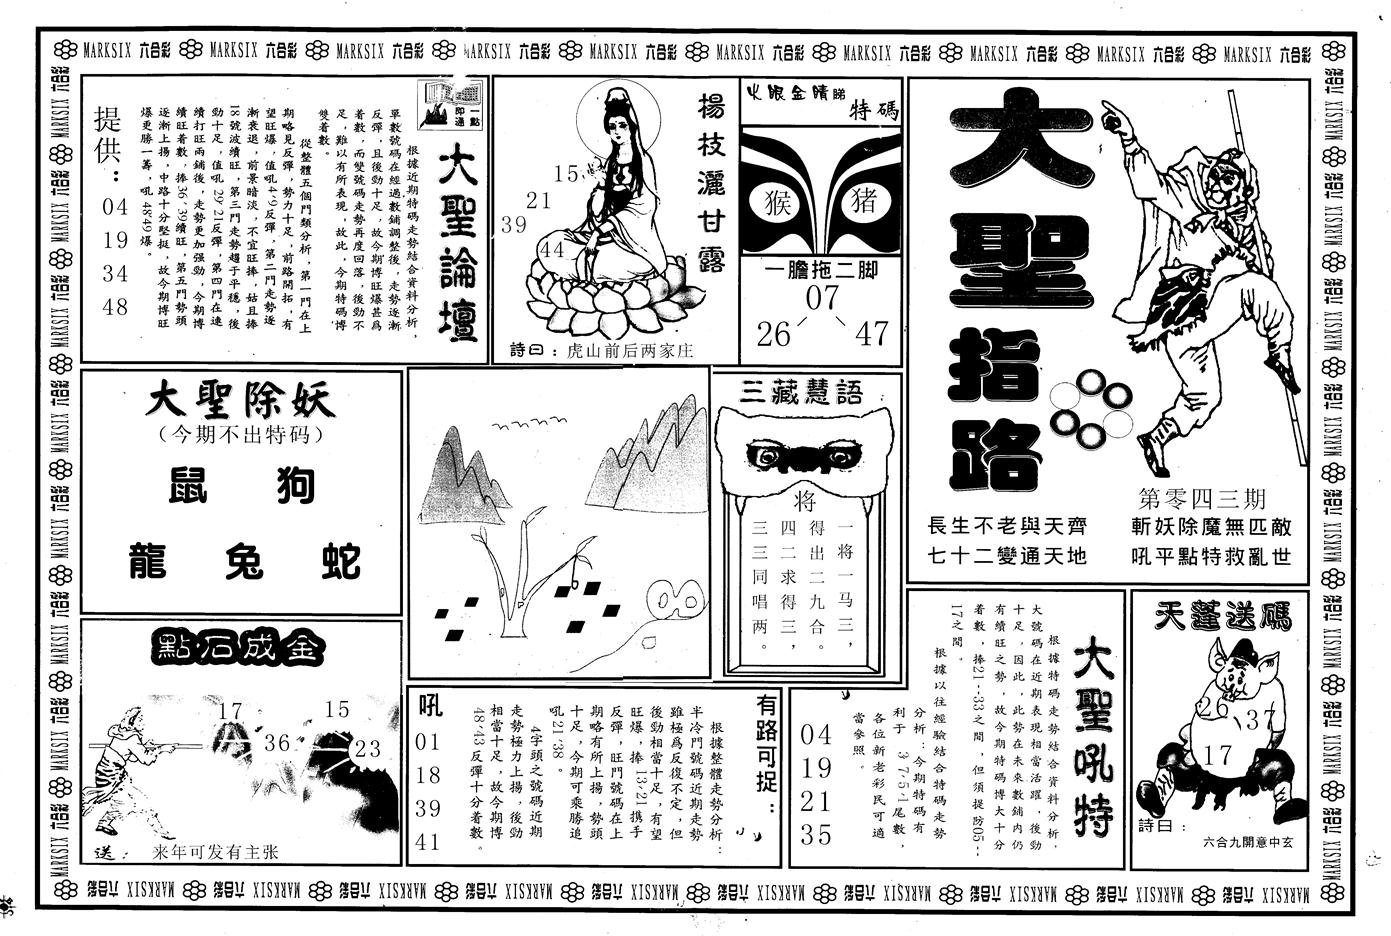 MARKSIX 六合彩 MARKSIX 六合彩 MARKSIX 六合彩 MARKSIX 六合彩 MARKSIX 六合彩 MARKSIX 六合彩 MARKSIX 六合彩 MARKSIX 六合彩 MARKSIX 六合彩 MARKSIX 六合彩
大聖指路
第零四三期
長生不老與天齊
七十二變通天地
斬妖除魔無匹敵
吼平點特救亂世
火眼金睛睇特碼
猴
猪
一膽拖二脚
07
26
47
楊枝灑甘露
15
21
39
44
詩曰：虎山前后两家庄
一點即通
大聖論壇
根據近期特碼走勢結合資料分析，
單數號碼在經過數鋪調整後，走勢逐漸
反彈，且後勁十足，故今期博旺爆甚爲
着數，而雙號碼走勢再度回落，後勁不
足，難以有所表現，故此，今期特碼博
雙着數。
從整體五個門類分析，第一門在上
期略見反彈，勢力十足，前路開拓，有
望旺爆，值吼4·9反彈，第二門走勢逐
漸衰退，前景暗淡，不宜旺捧，姑且捧
18號波續旺，第三門走勢趨于平穩，後
勁十足，值吼29·21反彈，第四門在連
續打旺兩鋪後，走勢更加强勁，今期博
續旺着數，捧36·39續旺，第五門勢頭
逐漸上揚，中路十分堅挺，故今期博旺
爆更勝一籌，吼48·49爆。
提供：
04
19
34
48
大聖除妖
（今期不出特码）
鼠 狗
龍 兔 蛇
三藏慧語
将
一将一马三，
得出二九合。
四二求得三，
三三同唱两。
點石成金
17
36
15
23
送： 来年可发有主张
有路可捉：
根據整體走勢分析：
半冷門號碼近期走勢
雖極爲反復不定，但
後勁相當十足，有望
旺爆，捧13·21携手
反彈，旺門號碼在上
期略有所上揚，勢頭
十足，今期可乘勝追
吼21·38。
4字頭之號碼近期
走勢極力上揚，後勁
相當十足，故今期博
48·43反彈十分着數。
吼
01
18
39
41
大聖吼特
根據特碼走勢結合資料分析，
大號碼在近期表現相當活躍，後勁
十足，因此，此勢在未來數鋪内仍
有續旺之勢，故今期特碼博大十分
着數，捧21--33之間，但須提防05--
17之間。
根據以往經驗結合特碼走勢
分析：今期特碼有
利于3·7·5·1尾數，
各位新老彩民可適
當參照。
04
19
21
35
天蓬送碼
26
37
17
詩曰：
六合九開意中玄